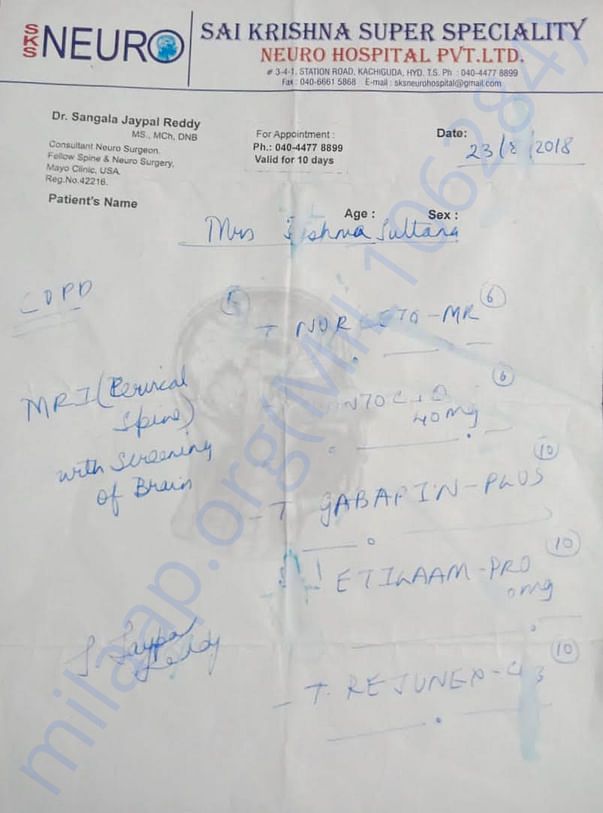 SKS NEURO
SAI KRISHNA SUPER SPECIALITY
NEURO HOSPITAL PVT.LTD.
# 3-4-1, STATION ROAD, KACHIGUDA, HYD. T.S. Ph : 040-4477 8899
Fax : 040-6661 5868 E-mail : sksneurohospital@gmail.com
Dr. Sangala Jaypal Reddy
MS., MCh, DNB
Consultant Neuro Surgeon.
Fellow Spine & Neuro Surgery,
Mayo Clinic, USA.
Reg.No.42216.
For Appointment :
Ph.: 040-4477 8899
Valid for 10 days
Date:
23/8/2018
Patient's Name
Age : Sex :
Mrs Sultana
COPD
MRI (Cervical
Spine)
with Screening
of Brain
T NUR MR 6
40mg 6
T GABAPIN-PLUS 10
ETILAAM-PRO 10
mg
T. REJUNEX- 10
S. Jaypal
Reddy
milaap.org(Mil-106284)